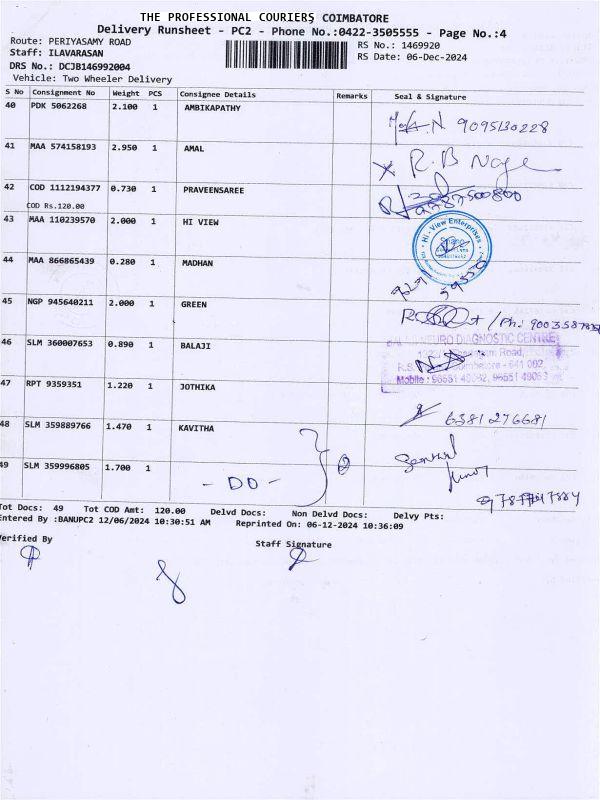 THE PROFESSIONAL COURIERS COIMBATORE
Delivery Runsheet - PC2 - Phone No.:0422-3505555 - Page No.:4
Route: PERIYASAMY ROAD
RS No.: 1469920
Staff: ILAVARASAN
RS Date: 06-Dec-2024
DRS No.: DCJB146992004
Vehicle: Two Wheeler Delivery
S No Consignment No Weight PCS Consignee Details Remarks Seal & Signature
40 PDK 5062268 2.100 1 AMBIKAPATHY
9095130228
41 MAA 574158193 2.950 1 AMAL
R.B
42 COD 1112194377 0.730 1 PRAVEENSAREE
COD Rs.120.00
43 MAA 110239570 2.000 1 HI VIEW
Hi - View Enterprises
44 MAA 866865439 0.280 1 MADHAN
45 NGP 945640211 2.000 1 GREEN
/ Ph:
46 SLM 360007653 0.890 1 BALAJI
NEURO DIAGNOSTIC CENTRE
Road,
R.S. Coimbatore - 641 002.
Mobile :
47 RPT 9359351 1.220 1 JOTHIKA
6381276681
48 SLM 359889766 1.470 1 KAVITHA
49 SLM 359996805 1.700 1
- DO -
Tot Docs: 49 Tot COD Amt: 120.00 Delvd Docs: Non Delvd Docs: Delvy Pts:
Entered By :BANUPC2 12/06/2024 10:30:51 AM Reprinted On: 06-12-2024 10:36:09
Verified By
Staff Signature